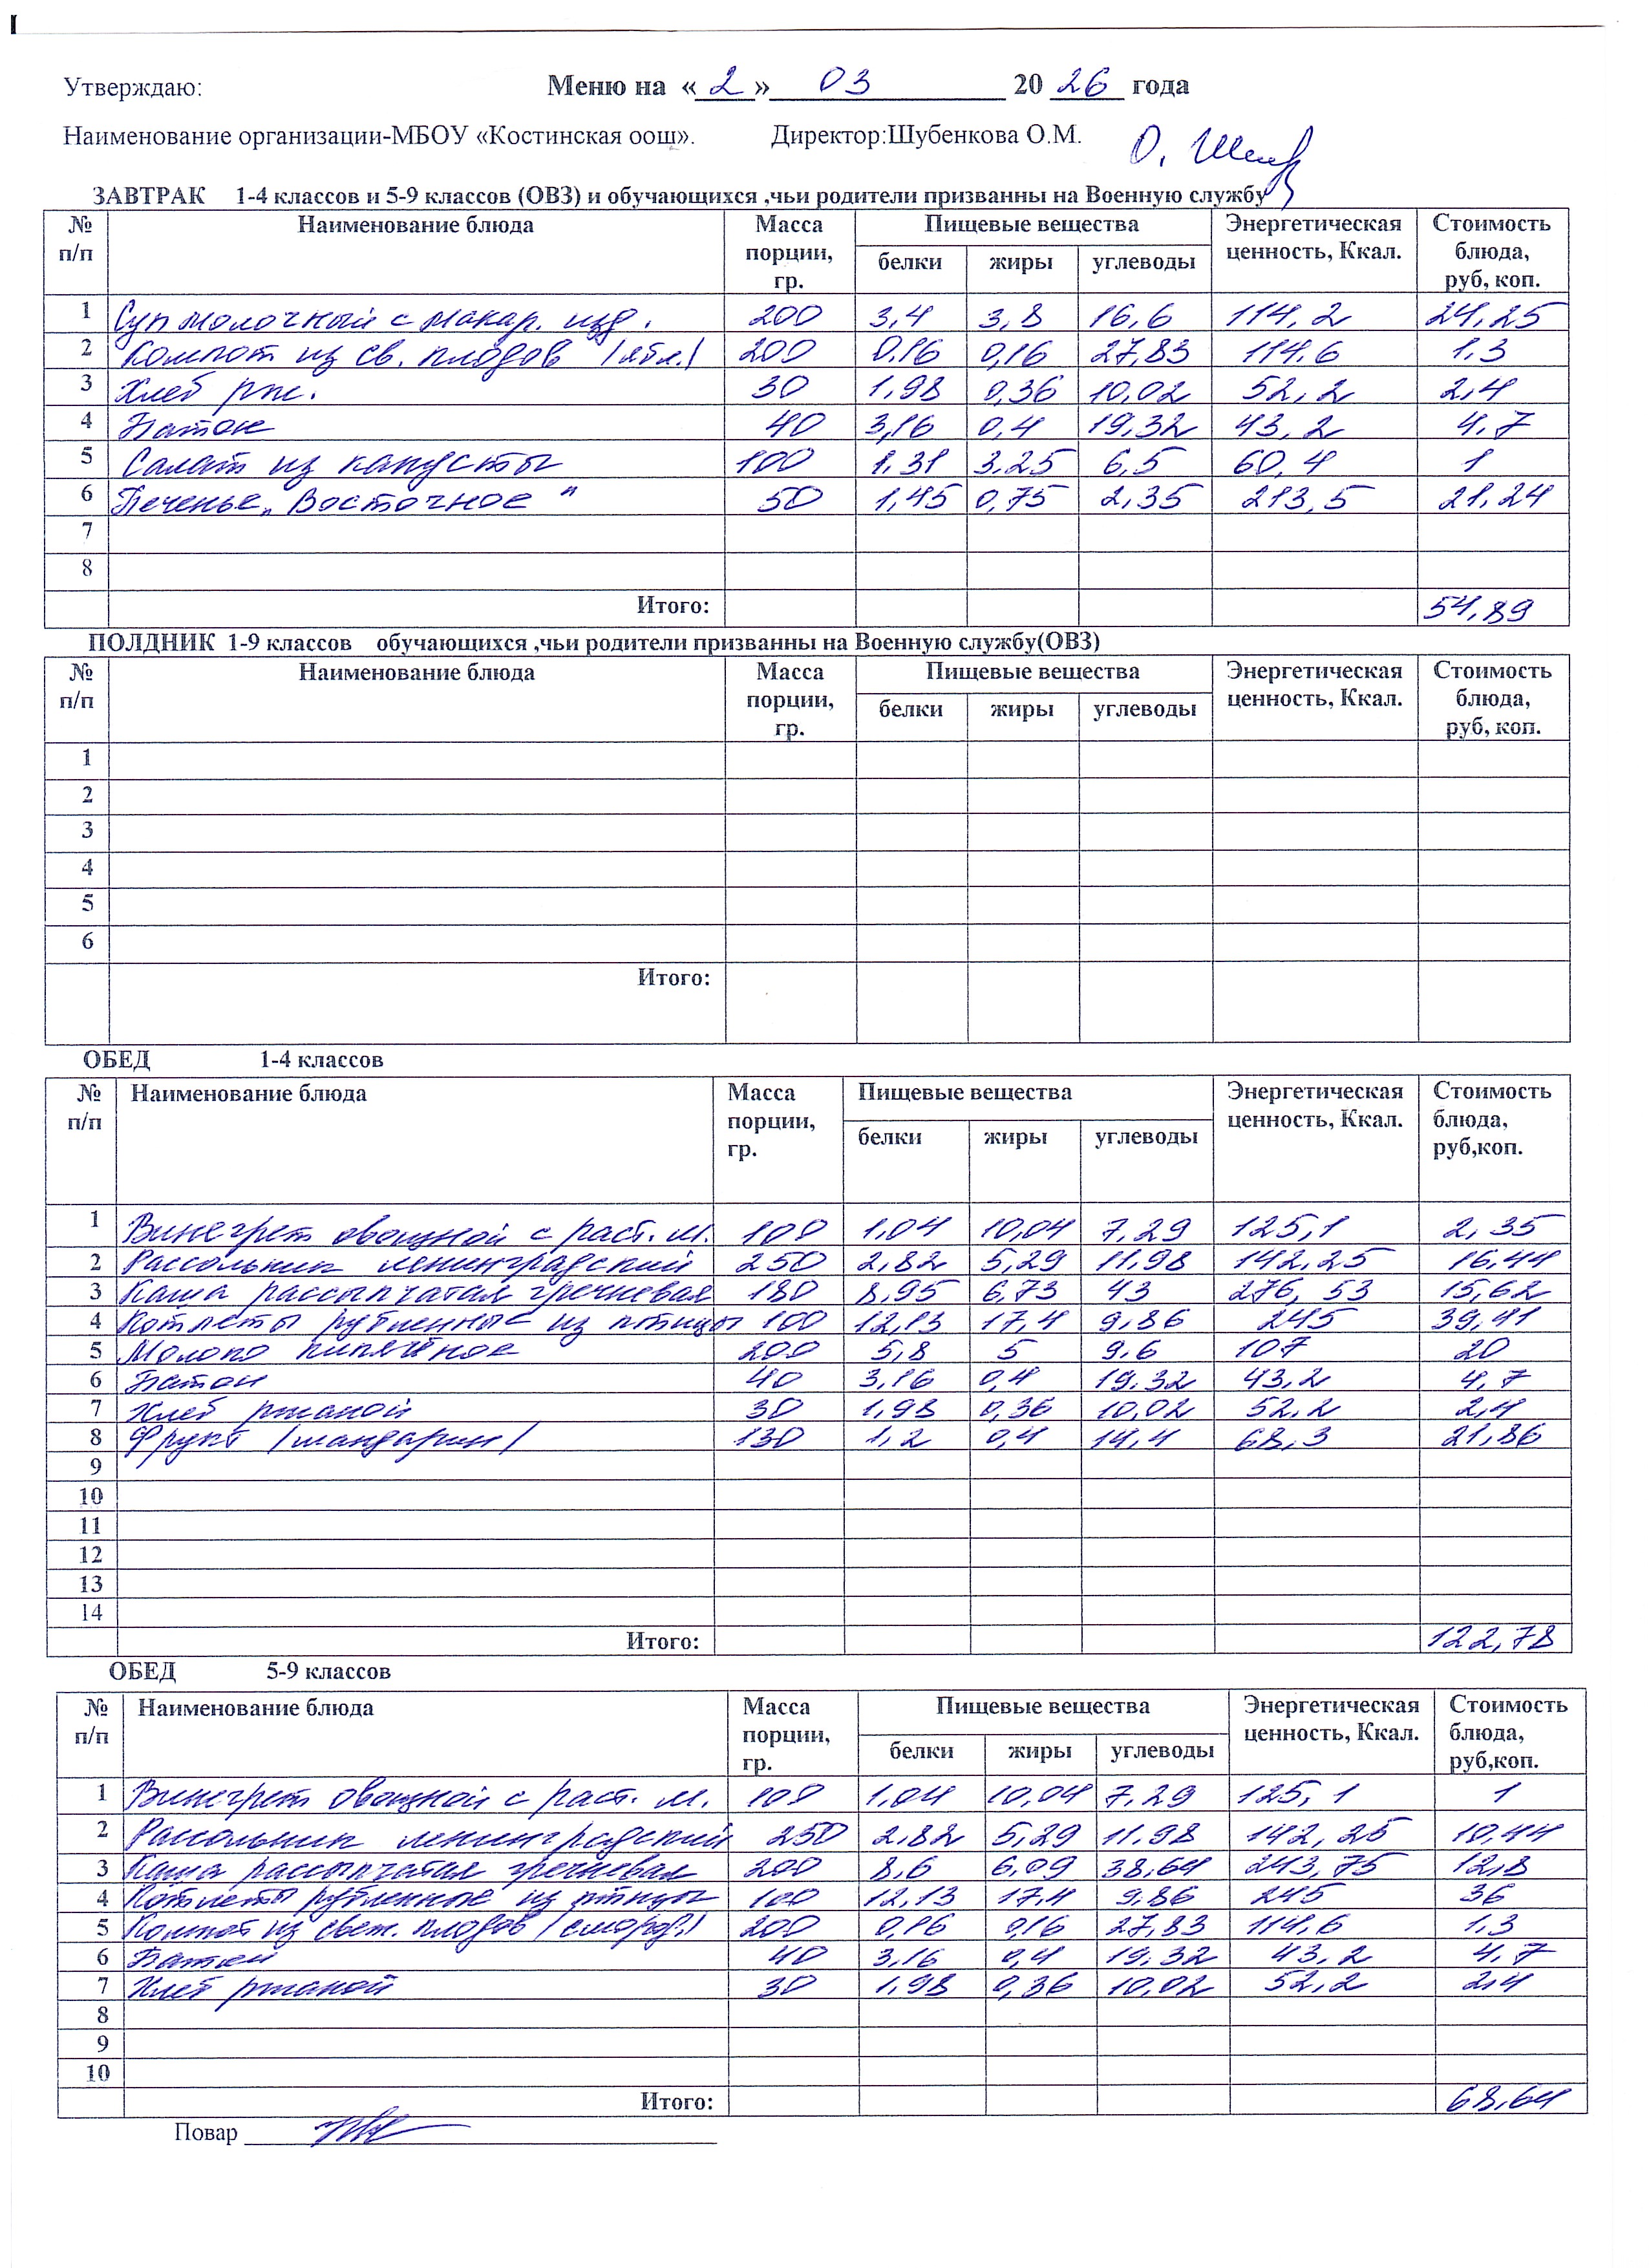 Утверждаю: Меню на «2» 03 20 26 года
Наименование организации-МБОУ «Костинская оош». Директор:Шубенкова О.М.
ЗАВТРАК 1-4 классов и 5-9 классов (ОВЗ) и обучающихся ,чьи родители призванны на Военную службу
№ п/п Наименование блюда Масса порции, гр. Пищевые вещества Энергетическая ценность, Ккал. Стоимость блюда, руб, коп.
белки жиры углеводы
1 Суп молочный с макар. изд. 200 3,4 3,8 16,6 114,2 24,25
2 Компот из св. плодов /ябл./ 200 0,16 0,16 27,83 114,6 1,3
3 Хлеб рж. 30 1,98 0,36 10,02 52,2 2,4
4 Батон 40 3,16 0,4 19,32 43,2 4,7
5 Салат из капусты 100 1,31 3,25 6,5 60,4 1
6 Печенье „Восточное" 50 1,45 0,75 2,35 213,5 21,24
7
8
Итого: 54,89
ПОЛДНИК 1-9 классов обучающихся ,чьи родители призванны на Военную службу(ОВЗ)
№ п/п Наименование блюда Масса порции, гр. Пищевые вещества Энергетическая ценность, Ккал. Стоимость блюда, руб, коп.
белки жиры углеводы
1
2
3
4
5
6
Итого:
ОБЕД 1-4 классов
№ п/п Наименование блюда Масса порции, гр. Пищевые вещества Энергетическая ценность, Ккал. Стоимость блюда, руб,коп.
белки жиры углеводы
1 Винегрет овощной с раст. м. 100 1,04 10,04 7,29 125,1 2,35
2 Рассольник ленинградский 250 2,82 5,29 11,98 142,25 16,44
3 Каша рассыпчатая гречневая 180 8,95 6,73 43 276,53 15,62
4 Котлеты рубленные из птицы 100 12,13 17,4 9,86 245 39,41
5 Молоко кипячёное 200 5,8 5 9,6 107 20
6 Батон 40 3,16 0,4 19,32 43,2 4,7
7 Хлеб ржаной 30 1,98 0,36 10,02 52,2 2,4
8 Фрукт /мандарин/ 130 1,2 0,4 14,4 68,3 21,86
9
10
11
12
13
14
Итого: 122,78
ОБЕД 5-9 классов
№ п/п Наименование блюда Масса порции, гр. Пищевые вещества Энергетическая ценность, Ккал. Стоимость блюда, руб,коп.
белки жиры углеводы
1 Винегрет овощной с раст. м. 100 1,04 10,04 7,29 125,1 1
2 Рассольник ленинградский 250 2,82 5,29 11,98 142,25 10,44
3 Каша рассыпчатая гречневая 200 8,6 6,09 38,64 243,75 12,8
4 Котлеты рубленные из птицы 100 12,13 17,4 9,86 245 36
5 Компот из свеж. плодов /смород./ 200 0,16 0,16 27,83 114,6 1,3
6 Батон 40 3,16 0,4 19,32 43,2 4,7
7 Хлеб ржаной 30 1,98 0,36 10,02 52,2 2,4
8
9
10
Итого: 68,64
Повар